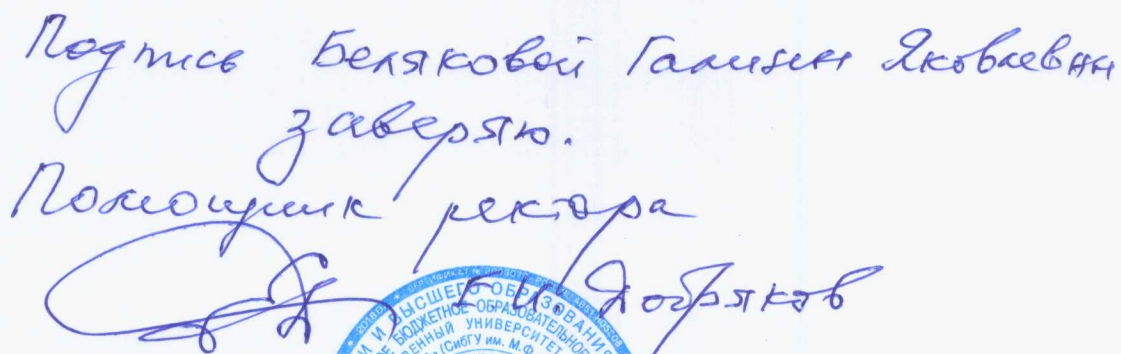 Подпись Беляковой Галины Яковлевны
заверяю.
Помощник ректора
Добряков
И ВЫСШЕГО ОБРАЗОВАНИЯ
БЮДЖЕТНОЕ ОБРАЗОВАТЕЛЬНОЕ
УНИВЕРСИТЕТ
(СибГУ им. М.Ф.